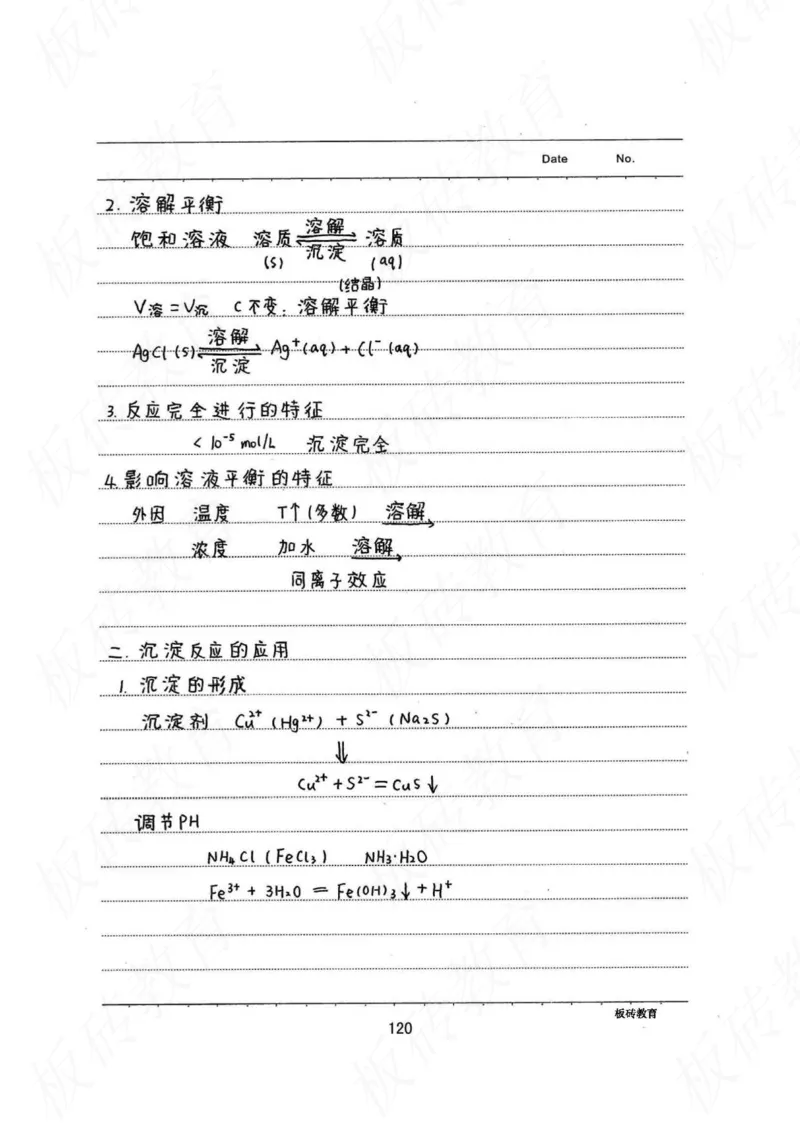 Date No.
2. 溶解平衡
饱和溶液 溶质(s) ⇌ 溶解 沉淀(结晶) 溶质(aq)
V溶=V沉 C不变: 溶解平衡
AgCl(s) ⇌ 溶解 沉淀 Ag⁺(aq)+Cl⁻(aq)
3. 反应完全进行的特征
<10⁻⁵ mol/L 沉淀完全
4. 影响溶液平衡的特征
外因 温度 T↑(多数) 溶解→
浓度 加水 溶解→
同离子效应
二. 沉淀反应的应用
1. 沉淀的形成
沉淀剂 Cu²⁺(Hg²⁺) + S²⁻(Na₂S)
⇓
Cu²⁺+S²⁻=CuS↓
调节PH
NH₄Cl(FeCl₃) NH₃·H₂O
Fe³⁺ + 3H₂O = Fe(OH)₃↓+H⁺
板砖教育
120